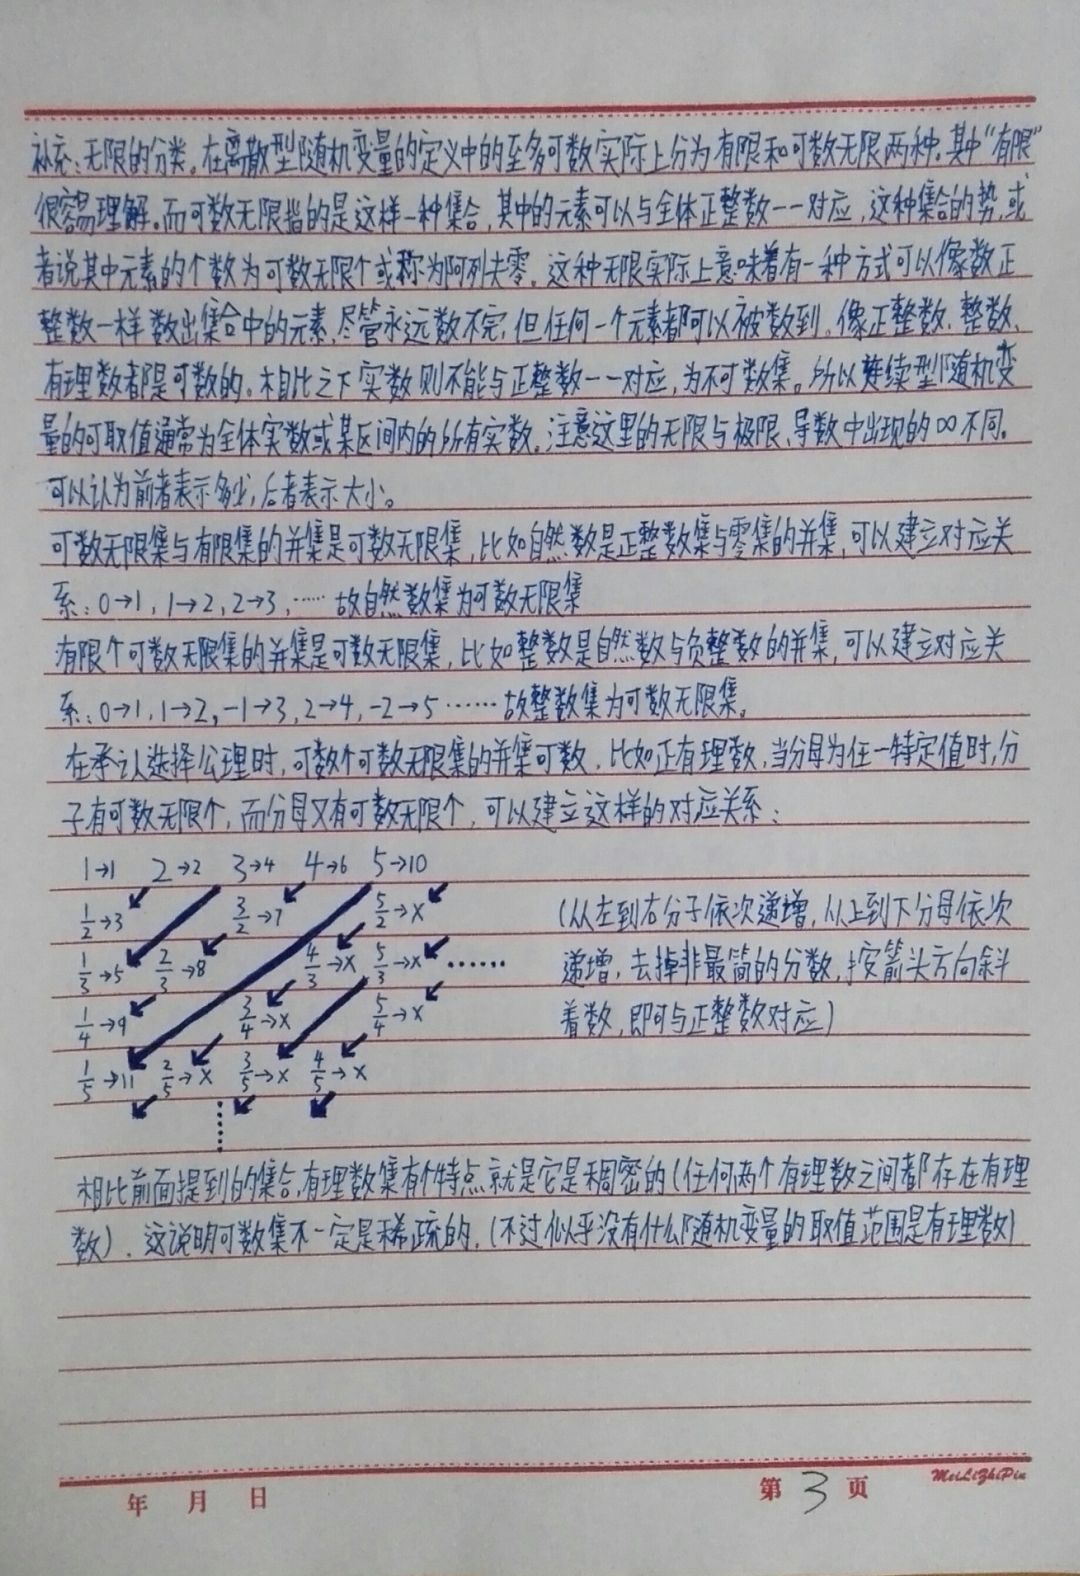 补充：无限的分类。在离散型随机变量的定义中的至多可数实际上分为有限和可数无限两种。其中“有限”
很容易理解。而可数无限指的是这样一种集合，其中的元素可以与全体正整数一一对应，这种集合的势，或
者说其中元素的个数为可数无限个或称为阿列夫零。这种无限实际上意味着有一种方式可以像数正
整数一样数出集合中的元素，尽管永远数不完，但任何一个元素都可以被数到。像正整数、整数、
有理数都是可数的。相比之下实数则不能与正整数一一对应，为不可数集。所以连续型随机变
量的可取值通常为全体实数或某区间内的所有实数。注意这里的无限与极限、导数中出现的∞不同。
可以认为前者表示多少，后者表示大小。
可数无限集与有限集的并集是可数无限集，比如自然数是正整数集与零集的并集，可以建立对应关
系：0→1，1→2，2→3，…… 故自然数集为可数无限集
有限个可数无限集的并集是可数无限集，比如整数是自然数与负整数的并集，可以建立对应关
系：0→1，1→2，-1→3，2→4，-2→5 …… 故整数集为可数无限集。
在承认选择公理时，可数个可数无限集的并集可数，比如正有理数，当分母为任一特定值时，分
子有可数无限个，而分母又有可数无限个，可以建立这样的对应关系：
1→1 2→2 3→4 4→6 5→10
1/2→3 3/2→7 5/2→x （从左到右分子依次递增，从上到下分母依次
1/3→5 2/3→8 4/3→x 5/3→x …… 递增，去掉非最简的分数，按箭头方向斜
1/4→9 3/4→x 5/4→x 着数，即可与正整数对应）
1/5→11 2/5→x 3/5→x 4/5→x
相比前面提到的集合，有理数集有个特点就是它是稠密的（任何两个有理数之间都存在有理
数），这说明可数集不一定是稀疏的，（不过似乎没有什么随机变量的取值范围是有理数）
年 月 日 第 3 页 MeiLiZhiPin